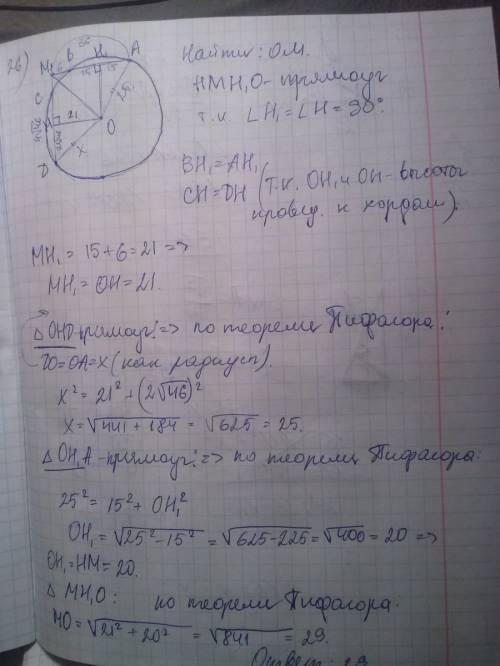 26)
36
M 6 B H₁ A
15 15
C
21
O
4√46
2√46
x
D
Найти: OM.
HMH₁O - прямоуг
т.к. ∠H₁ = ∠H = 90°
BH₁ = AH₁
CH = DH (т.к. OH₁ и OH - высоты
провед. к хордам).
MH₁ = 15 + 6 = 21 =>
MH₁ = OH = 21.
△OHD - прямоуг! => по теореме Пифагора:
DO = OA = X (как радиусы).
x² = 21² + (2√46)²
x = √441 + 184 = √625 = 25.
△OH₁A - прямоуг! => по теореме Пифагора:
25² = 15² + OH₁²
OH₁ = √25² - 15² = √625 - 225 = √400 = 20 =>
OH₁ = HM = 20.
△MH₁O: по теореме Пифагора.
MO = √21² + 20² = √841 = 29.
Ответ: 29